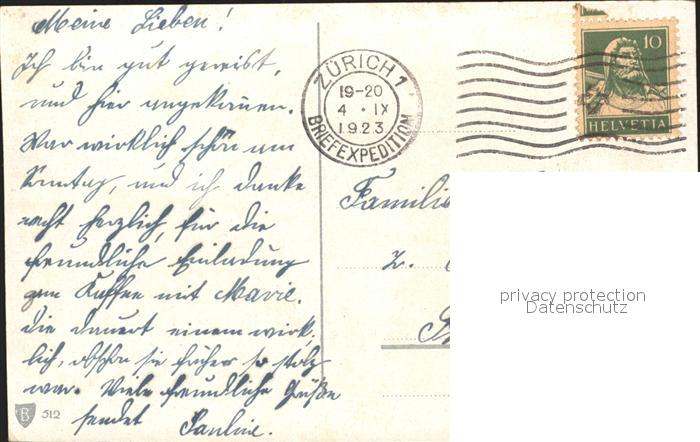 Meine Lieben!
Ich bin gut gereist,
und hier angekommen.
War wirklich schön am
Sonntag, und ich danke
recht herzlich, für die
freundliche Einladung
zum Kaffee mit Marie.
Die dauert einem wirk-
lich, obschon sie früher so stolz
war. Viele freundliche Grüße
sendet Pauline.
B 512
ZÜRICH 1
19-20
4 • IX
1923
BRIEFEXPEDITION
10
HELVETIA
Familie
Z.
privacy protection
Datenschutz